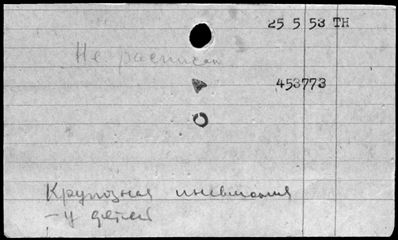 25 5 53 TH
Не расписан
453773
Крупозная пневмония
– у детей